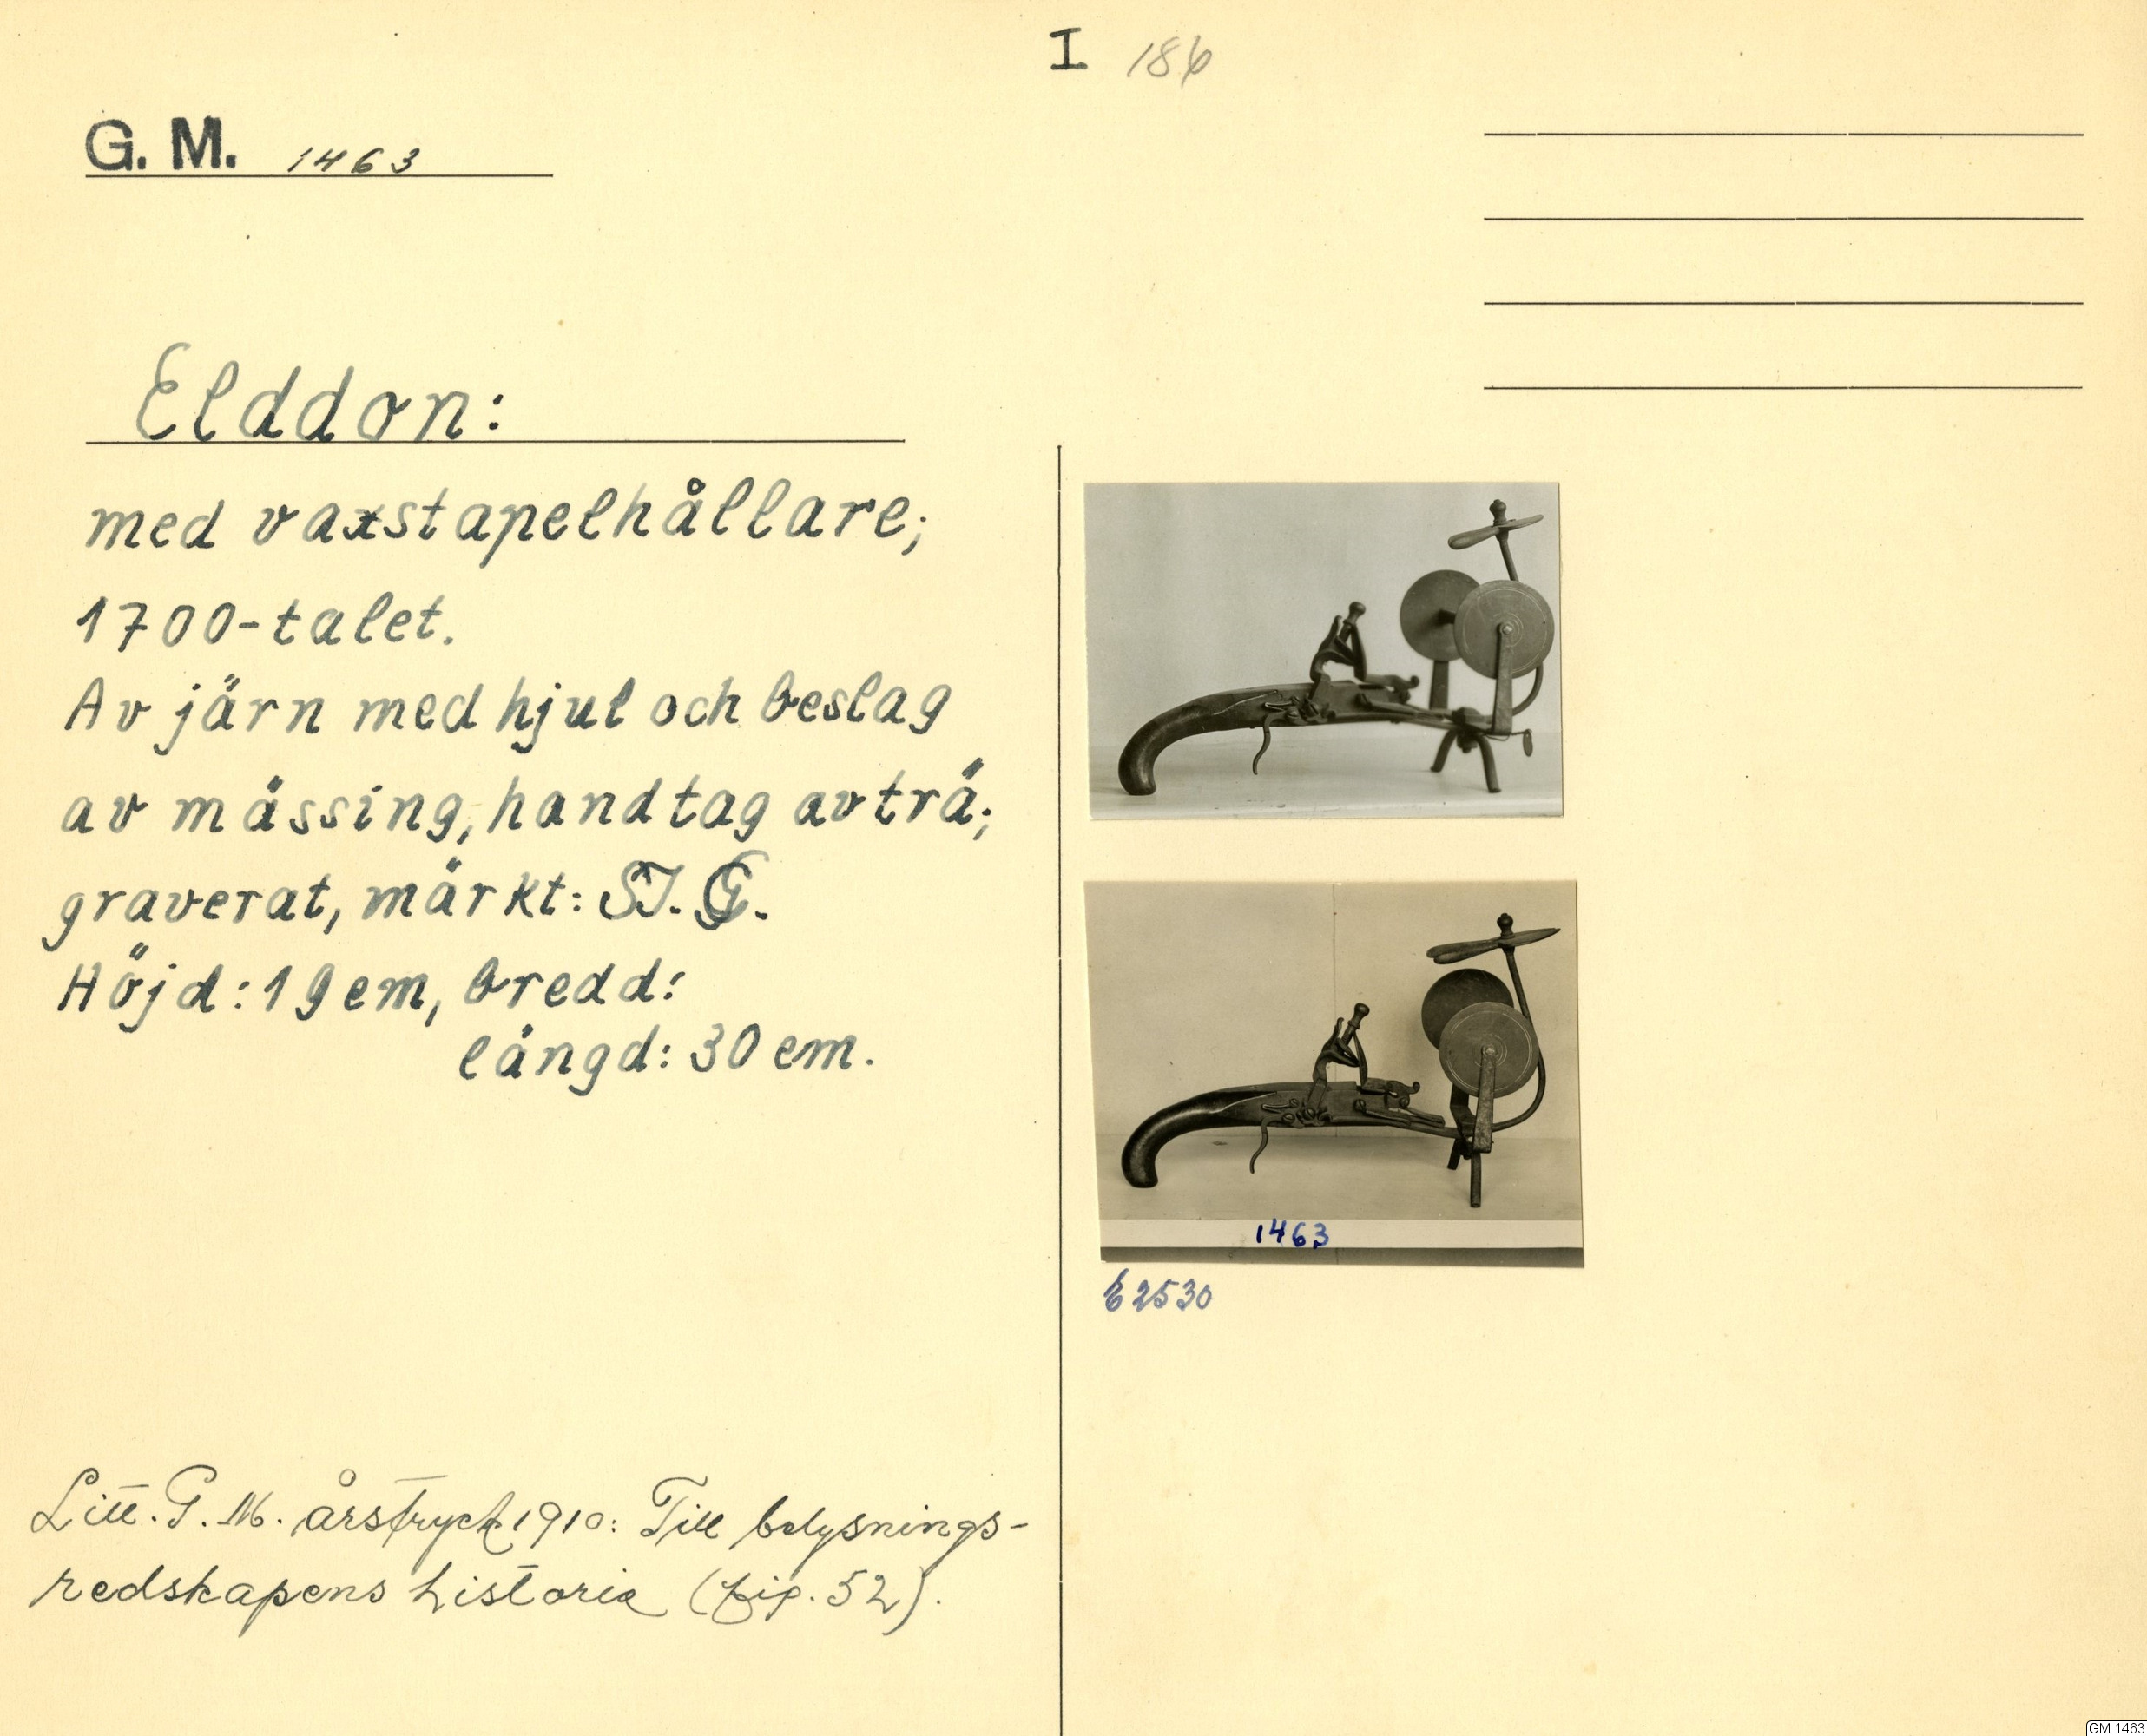 I 186
G. M. 1463
Elddon:
med vaxstapelhållare;
1700-talet.
Av järn med hjul och beslag
av mässing, handtag av trä;
graverat, märkt: S.J. G.
Höjd: 19 cm, bredd:
längd: 30 cm.
1463
E 2530
Litt. G. M. årstryck 1910: Till belysnings-
redskapens historia (fig. 52).
GM:1463